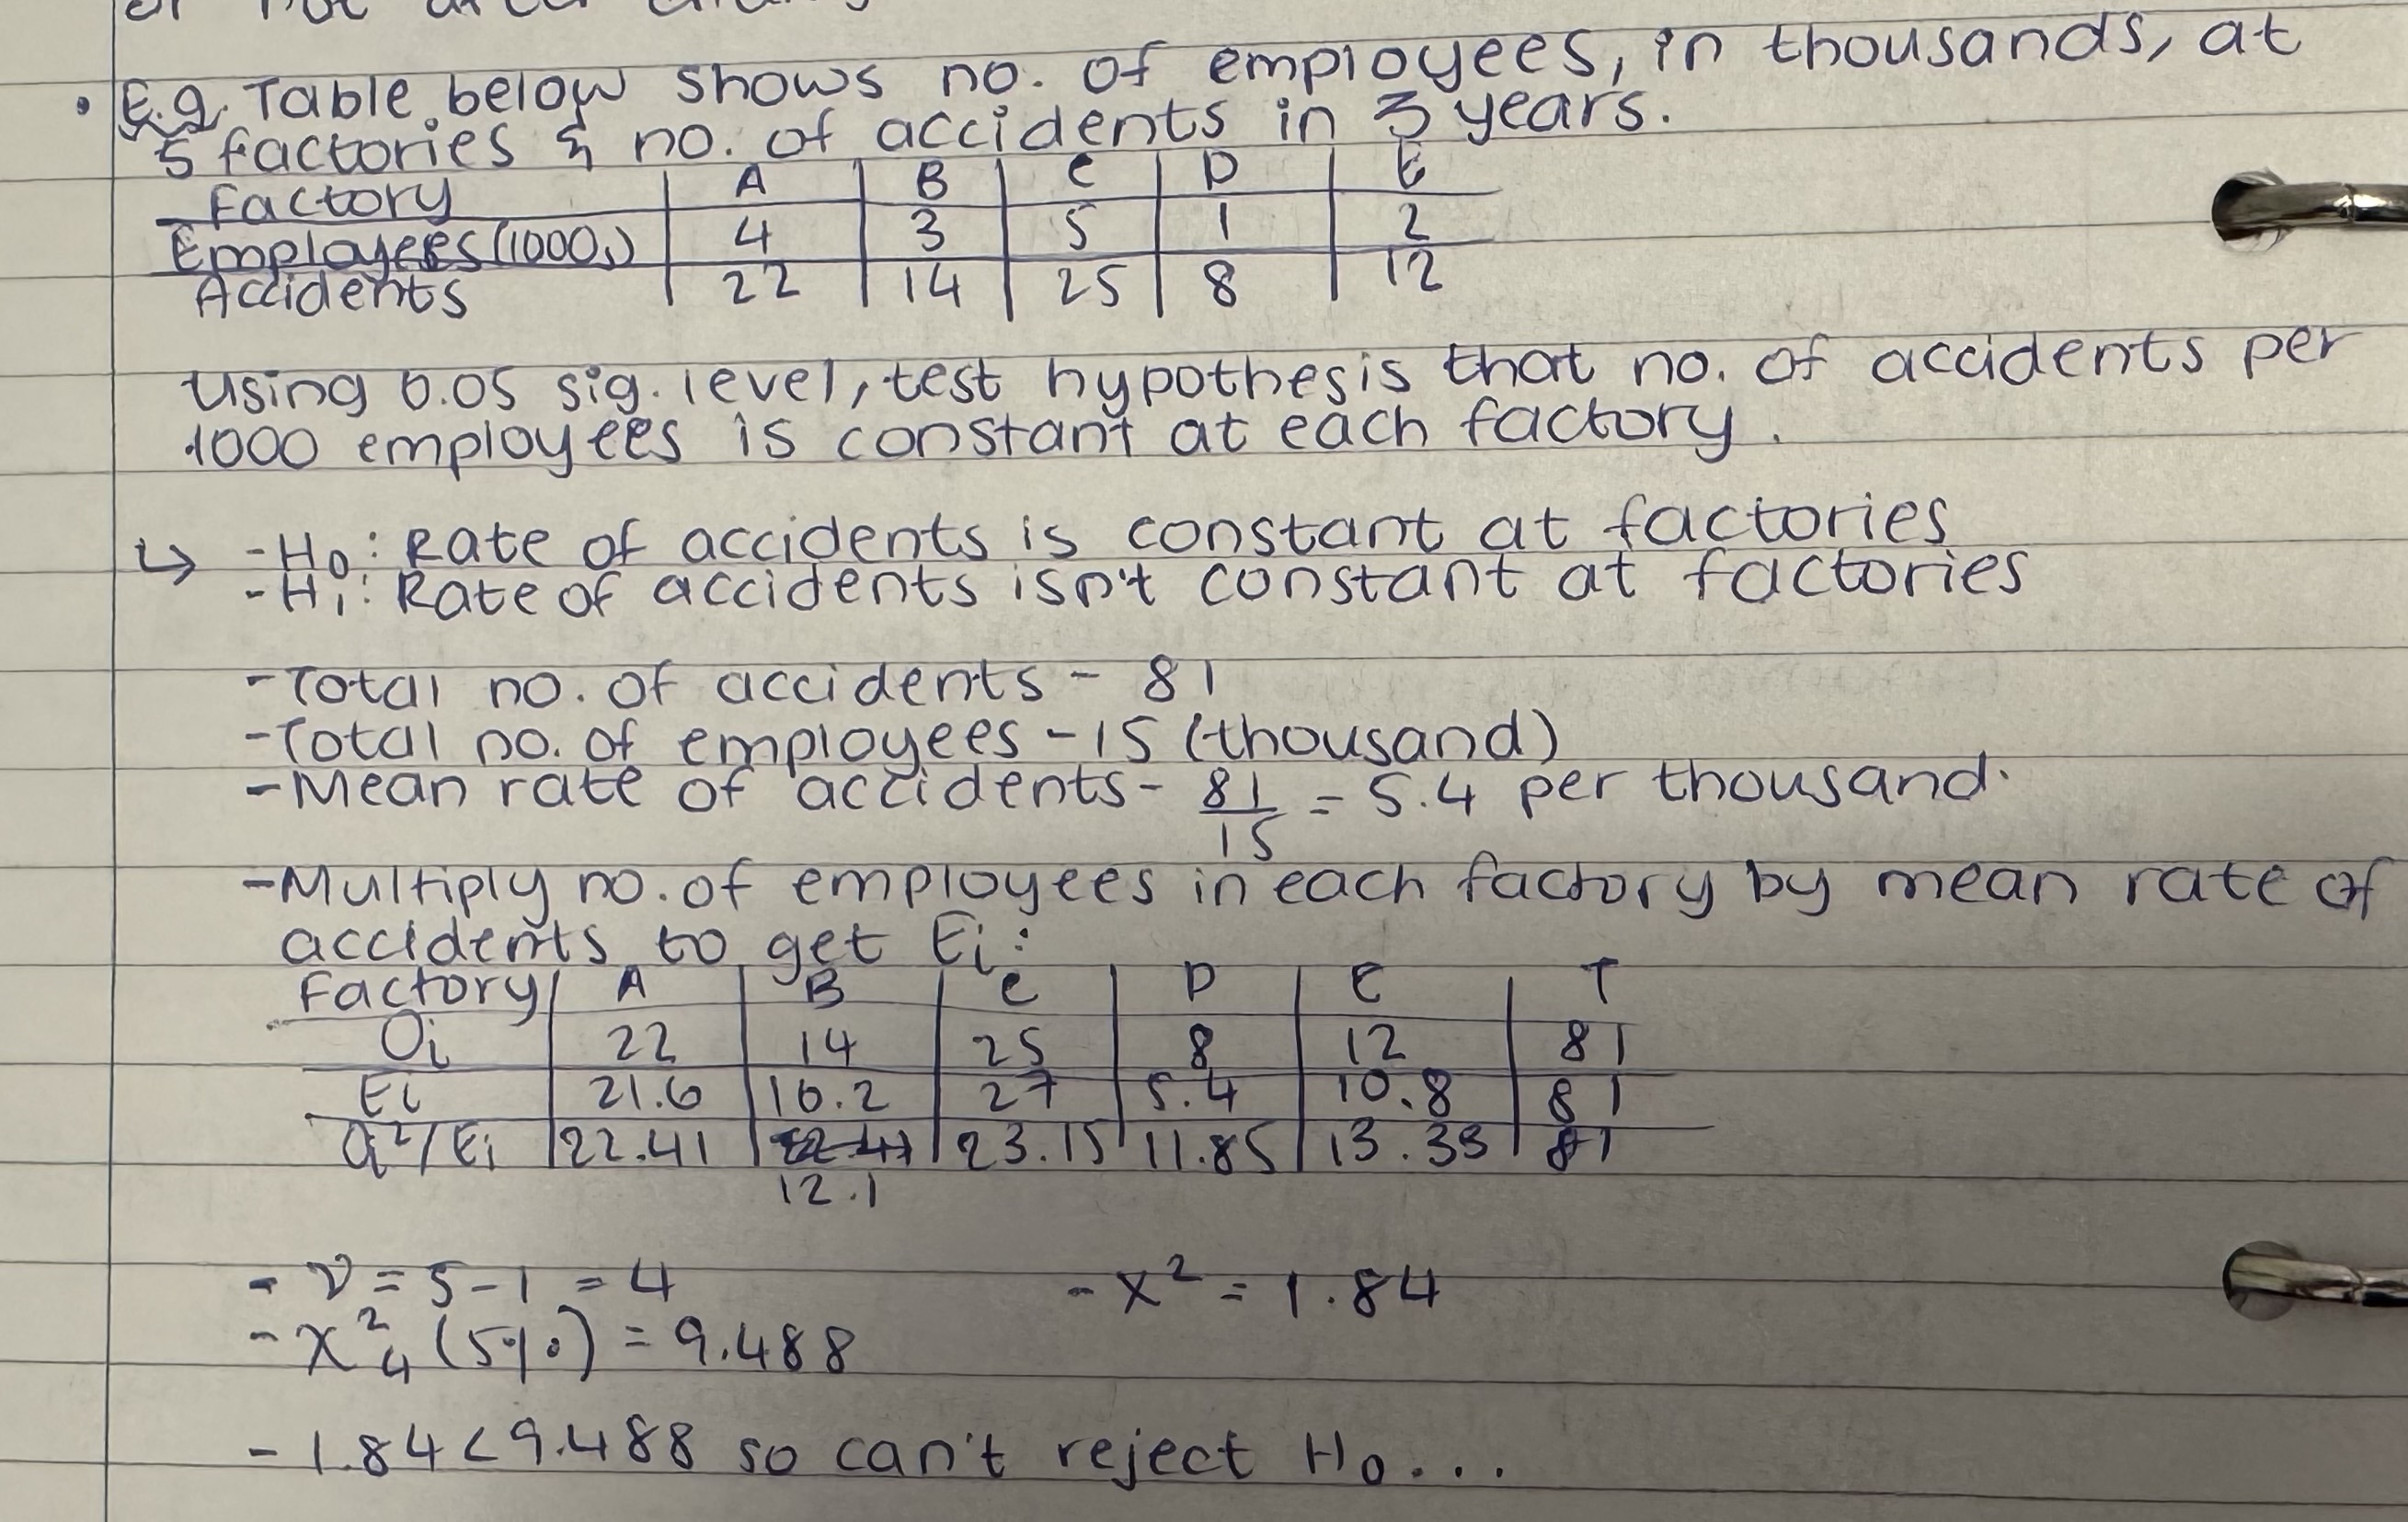 • E.g. Table below shows no. of employees, in thousands, at
5 factories & no. of accidents in 3 years.
Factory | A | B | C | D | E
Employees (1000s) | 4 | 3 | 5 | 1 | 2
Accidents | 22 | 14 | 25 | 8 | 12
Using 0.05 sig. level, test hypothesis that no. of accidents per
1000 employees is constant at each factory.
↳ - H₀: Rate of accidents is constant at factories
- H₁: Rate of accidents isn't constant at factories
- Total no. of accidents - 81
- Total no. of employees - 15 (thousand)
- Mean rate of accidents - 81/15 = 5.4 per thousand.
- Multiply no. of employees in each factory by mean rate of
accidents to get Ei:
Factory | A | B | C | D | E | T
Oi | 22 | 14 | 25 | 8 | 12 | 81
Ei | 21.6 | 16.2 | 27 | 5.4 | 10.8 | 81
Oi²/Ei | 22.41 | 12.1 | 23.15 | 11.85 | 13.33 | 81
- ν = 5 - 1 = 4 - X² = 1.84
- χ²₄ (5%) = 9.488
- 1.84 < 9.488 so can't reject H₀...